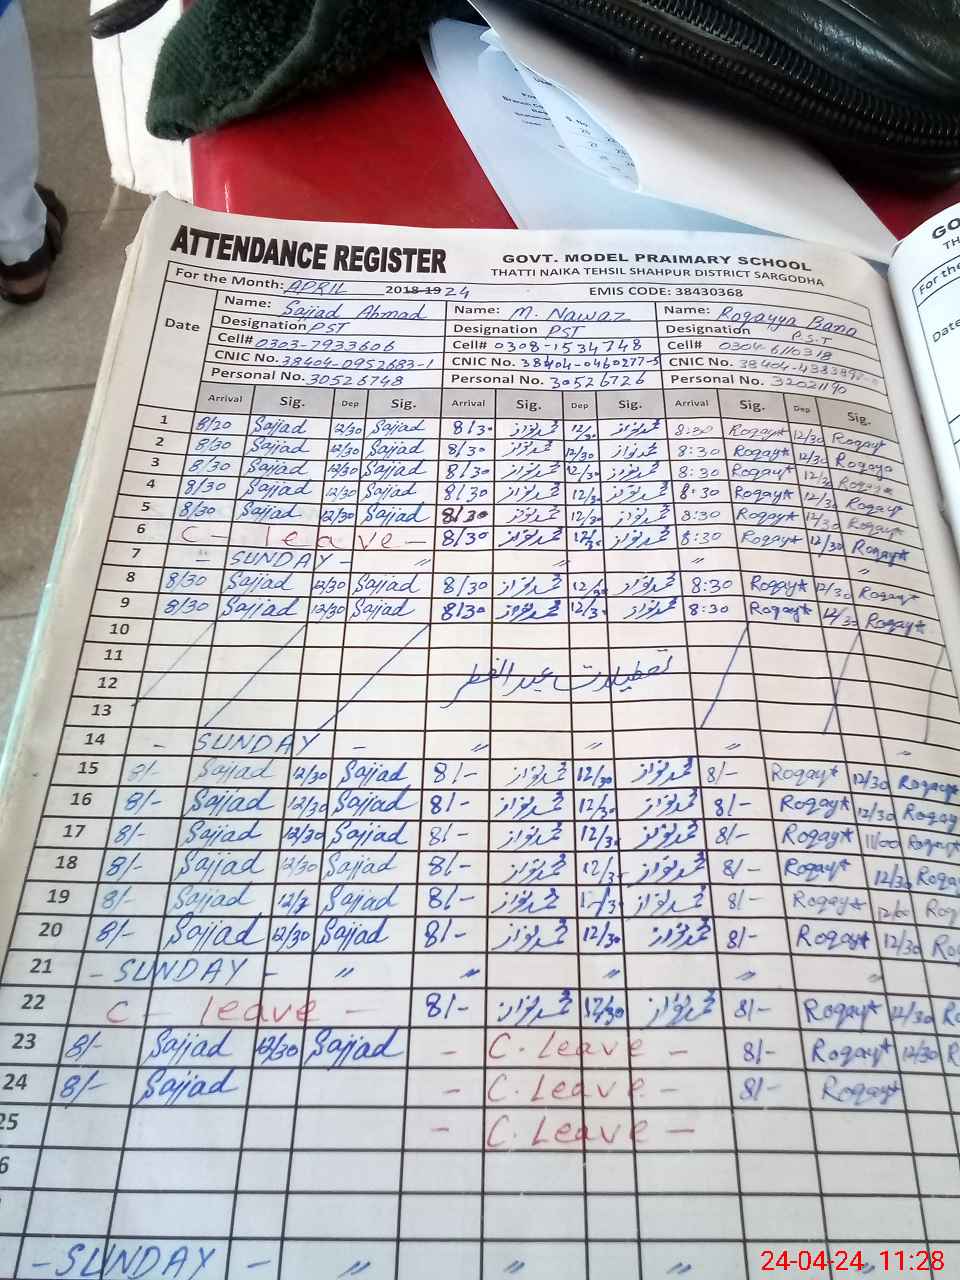 ATTENDANCE REGISTER
GOVT. MODEL PRAIMARY SCHOOL
THATTI NAIKA TEHSIL SHAHPUR DISTRICT SARGODHA
For the Month: APRIL 2018-19 24 EMIS CODE: 38430368
Date
Name: Sajjad Ahmad Name: M. Nawaz Name: Roqayya Bano
Designation PST Designation PST Designation P.S.T
Cell# 0303-7933606 Cell# 0308-1534748 Cell# 0304-6110318
CNIC No. 38404-0952683-1 CNIC No. 38404-0460277-5 CNIC No.
Personal No. 30526748 Personal No. 30526726 Personal No. 32021190
Arrival Sig. Dep Sig. Arrival Sig. Dep Sig. Arrival Sig. Dep Sig.
1 8/20 Sajjad 12/30 Sajjad 8/30 محمد نواز 12/30 محمد نواز 8:30 Roqayya 12/30 Roqayya
2 8/30 Sajjad 12/30 Sajjad 8/30 محمد نواز 12/30 محمد نواز 8:30 Roqayya 12/30 Roqayya
3 8/30 Sajjad 12/30 Sajjad 8/30 محمد نواز 12/30 محمد نواز 8:30 Roqayya 12/30 Roqayya
4 8/30 Sajjad 12/30 Sajjad 8/30 محمد نواز 12/30 محمد نواز 8:30 Roqayya 12/30 Roqayya
5 8/30 Sajjad 12/30 Sajjad 8/30 محمد نواز 12/30 محمد نواز 8:30 Roqayya 12/30 Roqayya
6 C - leave - 8/30 محمد نواز 12/30 محمد نواز 8:30 Roqayya 12/30 Roqayya
7 - SUNDAY - " " " "
8 8/30 Sajjad 12/30 Sajjad 8/30 محمد نواز 12/30 محمد نواز 8:30 Roqayya 12/30 Roqayya
9 8/30 Sajjad 12/30 Sajjad 8/30 محمد نواز 12/30 محمد نواز 8:30 Roqayya 12/30 Roqayya
10
11
12 تعطیلات عید الفطر
13
14 - SUNDAY - " " " "
15 8/- Sajjad 12/30 Sajjad 8/- محمد نواز 12/30 محمد نواز 8/- Roqayya 12/30 Roqayya
16 8/- Sajjad 12/30 Sajjad 8/- محمد نواز 12/30 محمد نواز 8/- Roqayya 12/30 Roqayya
17 8/- Sajjad 12/30 Sajjad 8/- محمد نواز 12/30 محمد نواز 8/- Roqayya 11/00 Roqayya
18 8/- Sajjad 12/30 Sajjad 8/- محمد نواز 12/30 محمد نواز 8/- Roqayya 12/30 Roqay
19 8/- Sajjad Sajjad 8/- محمد نواز محمد نواز 8/- Roqayya Roq
20 8/- Sajjad 12/30 Sajjad 8/- محمد نواز 12/30 محمد نواز 8/- Roqayya 12/30 Ro
21 - SUNDAY - " " " " "
22 C - leave - 8/- محمد نواز 12/30 محمد نواز 8/- Roqayya 12/30 R
23 8/- Sajjad 12/30 Sajjad - C. Leave - 8/- Roqayya 12/30 R
24 8/- Sajjad - C. Leave - 8/- Roqayya
25 - C. Leave -
6
- SUNDAY - " " " "
24-04-24 11:28